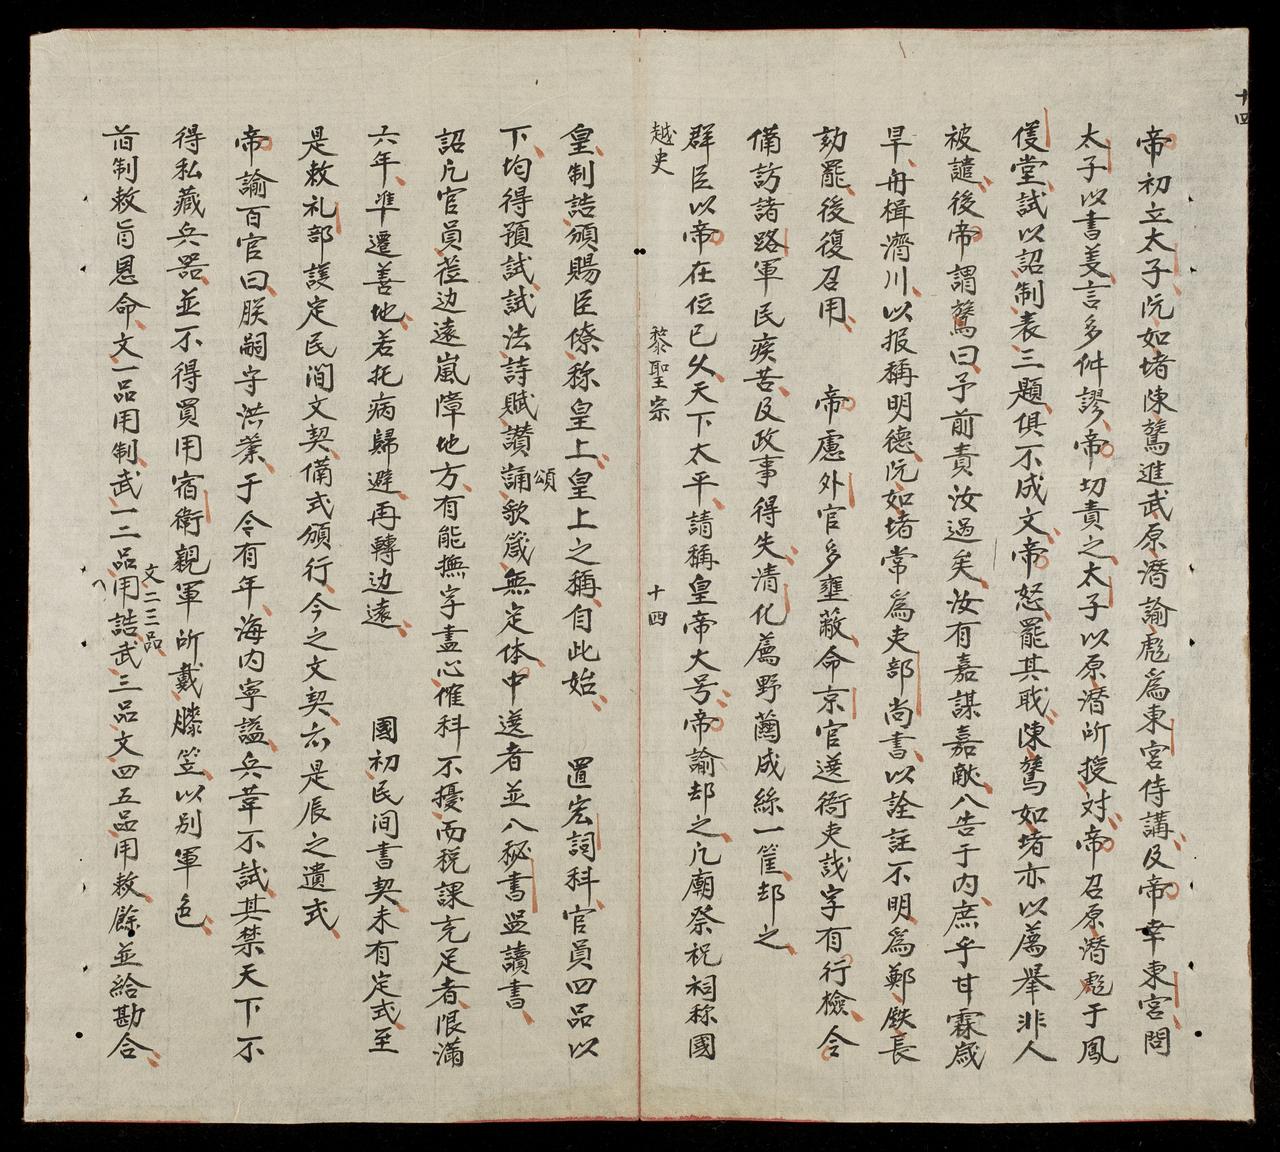 十四
帝初立太子阮如堵陳鵞進武原潛諭彪為東宮侍講及帝幸東宮問
太子以書義言多舛謬帝切責之太子以原潛所授対帝召原潛彪于鳳
僊堂試以詔制表三題俱不成文帝怒罷其职陳鵞如堵亦以薦举非人
被譴後帝謂鵞曰予前責汝過矣汝有嘉謀嘉猷入告于内庶乎甘霖歲
旱舟楫濟川以报稱明德阮如堵常為吏部尚書以詮註不明為鄭鉄長
劾罷後復召用　帝慮外官多壅蔽命京官選衙吏識字有行檢令
備訪諸路軍民疾苦及政事得失清化薦野繭成絲一筐却之
群臣以帝在位已久天下太平請稱皇帝大号帝諭却之凡廟祭祝祠称國
越史　黎聖宗　十四
皇制誥頒賜臣僚称皇上皇上之稱自此始　置宏詞科官員四品以
下均得預試試法詩賦讚誦頌歌箴無定体中選者並入秘書监讀書
詔凡官員莅边遠嵐障地方有能撫字盡心催科不擾而税課充足者限滿
六年準遷善地若托病歸避再轉边遠　國初民间書契未有定式至
是敕礼部護定民间文契備式頒行今之文契亦是辰之遺式
帝諭百官曰朕嗣守洪業于今有年海内寧謐兵革不試其禁天下不
得私藏兵器並不得買用宿衛親軍所戴膝笠以别軍色
旨制敕旨恩命文一品用制武一二品文二三品用誥武三品文四五品用敕餘並給勘合